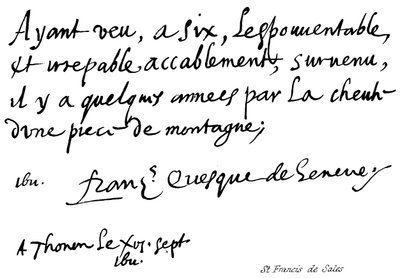 Ayant veu, a six, Lespouuentable,
et irrepable accablement, suruenu,
il y a quelques annees par La cheute
dune piece de montagne;
franç.s Euesque de Geneue.
A Thonon Le xvi. sept.
St Francis de Sales